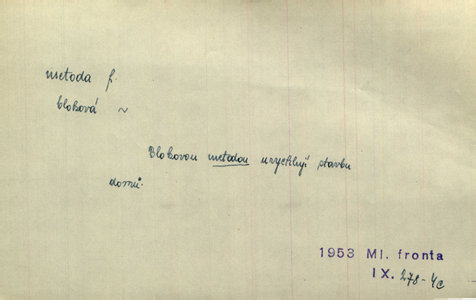 metoda f.
bloková ~
Blokovou metodou urychlují stavbu
domů.
1953 Ml. fronta
IX. 278-4c